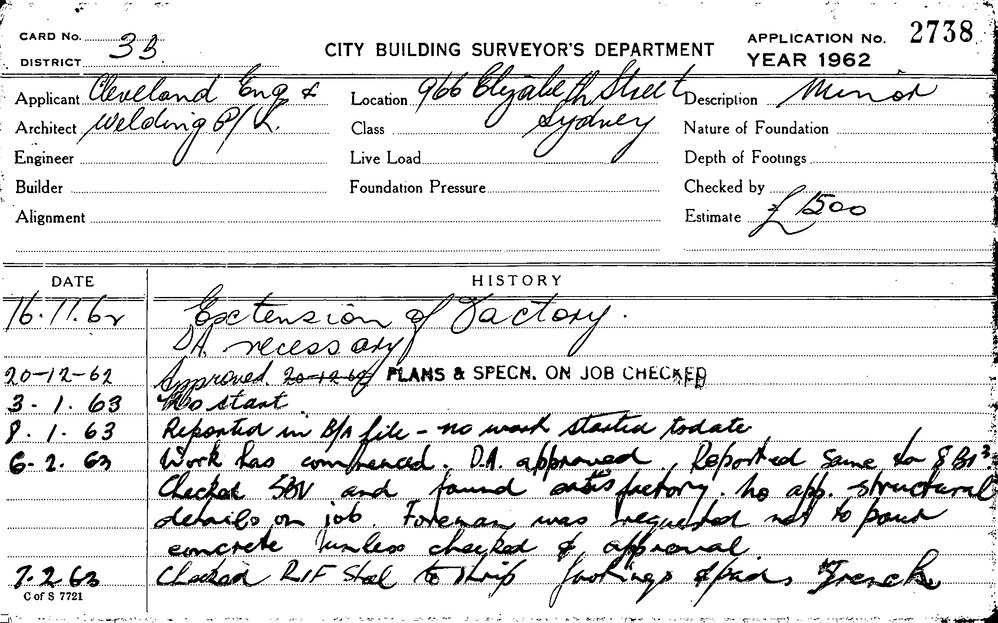 CARD No. 33
DISTRICT
CITY BUILDING SURVEYOR'S DEPARTMENT
APPLICATION No. 2738
YEAR 1962
Applicant Cleveland Eng &
Architect Welding P/L.
Engineer
Builder
Alignment
Location 966 Elizabeth Street
Class Sydney
Live Load
Foundation Pressure
Description Minor
Nature of Foundation
Depth of Footings
Checked by
Estimate £1500
DATE HISTORY
16.11.62 Exctension of Factory.
DA. necessary
20-12-62 Approved. 20-12-62 PLANS & SPECN. ON JOB CHECKED
3.1.63 No start
8.1.63 Reported in B/A file - no work started todate
6.2.63 Work has commenced. D.A. approved. Reported same to
Checked and found satisfactory. No app. structural
details on job. Foreman was requested not to pour
concrete unless checked & approval.
7.2.63 Checked R/F Steel to strip footings & pads
C of S 7721